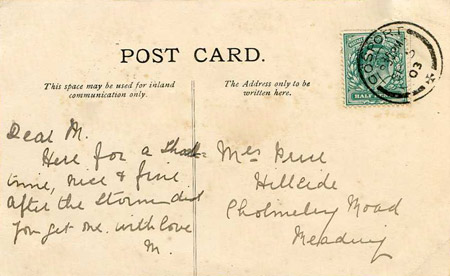 POST CARD.
This space may be used for inland
communication only.
The Address only to be
written here.
GOSPORT
03
HALF
Dear M.
Here for a short
time, nice & fine
after the storm did
you get one. with love
M.
Mrs
Hillside
Cholmeley Road
Reading